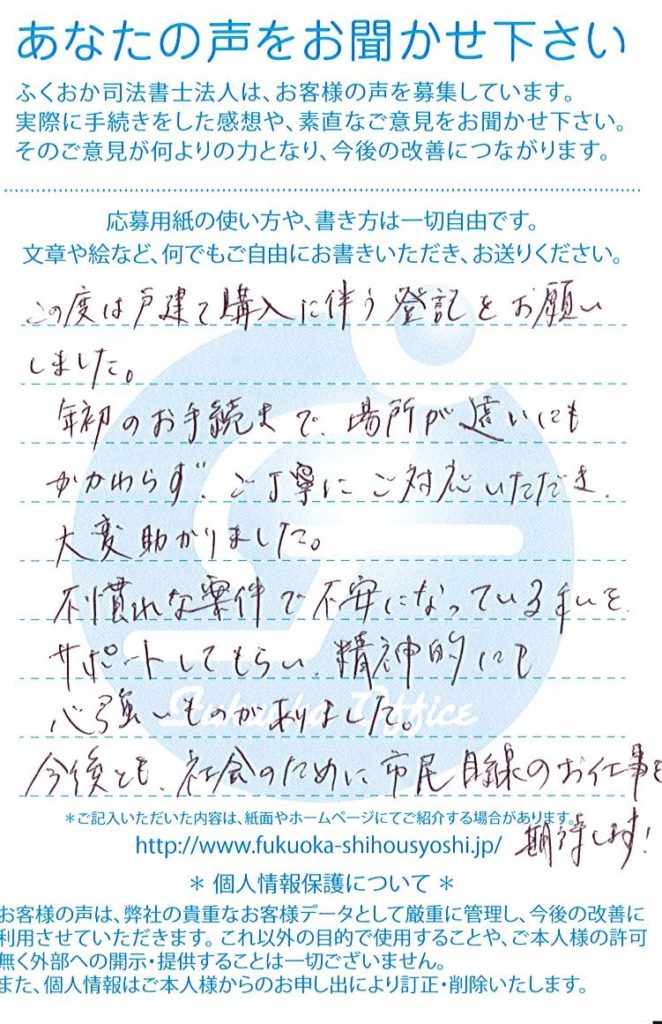 あなたの声をお聞かせ下さい
ふくおか司法書士法人は、お客様の声を募集しています。
実際に手続きをした感想や、素直なご意見をお聞かせ下さい。
そのご意見が何よりの力となり、今後の改善につながります。
応募用紙の使い方や、書き方は一切自由です。
文章や絵など、何でもご自由にお書きいただき、お送りください。
この度は戸建て購入に伴う登記をお願い
しました。
年初のお手続きで、場所が遠いにも
かかわらず、ご丁寧にご対応いただき、
大変助かりました。
不慣れな案件で不安になっている
サポートしてもらい、精神的にも
心強いものがありました。
Fukuoka Office
今後とも、社会のために市民目線のお仕事を
期待します!
*ご記入いただいた内容は、紙面やホームページにてご紹介する場合があります。
http://www.fukuoka-shihousyoshi.jp/
* 個人情報保護について *
お客様の声は、弊社の貴重なお客様データとして厳重に管理し、今後の改善に
利用させていただきます。これ以外の目的で使用することや、ご本人様の許可
無く外部への開示・提供することは一切ございません。
また、個人情報はご本人様からのお申し出により訂正・削除いたします。